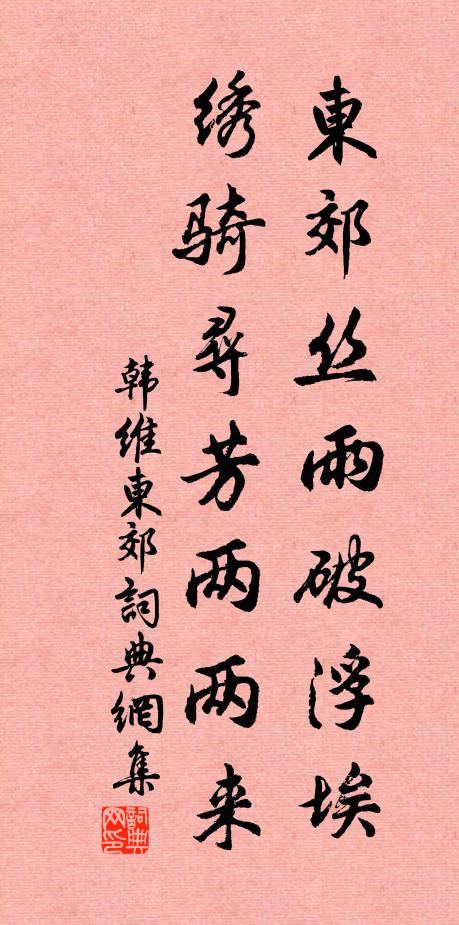 東郊丝雨破浮埃
绣骑尋芳两两来
韩维東郊詞典網集
詞典网印